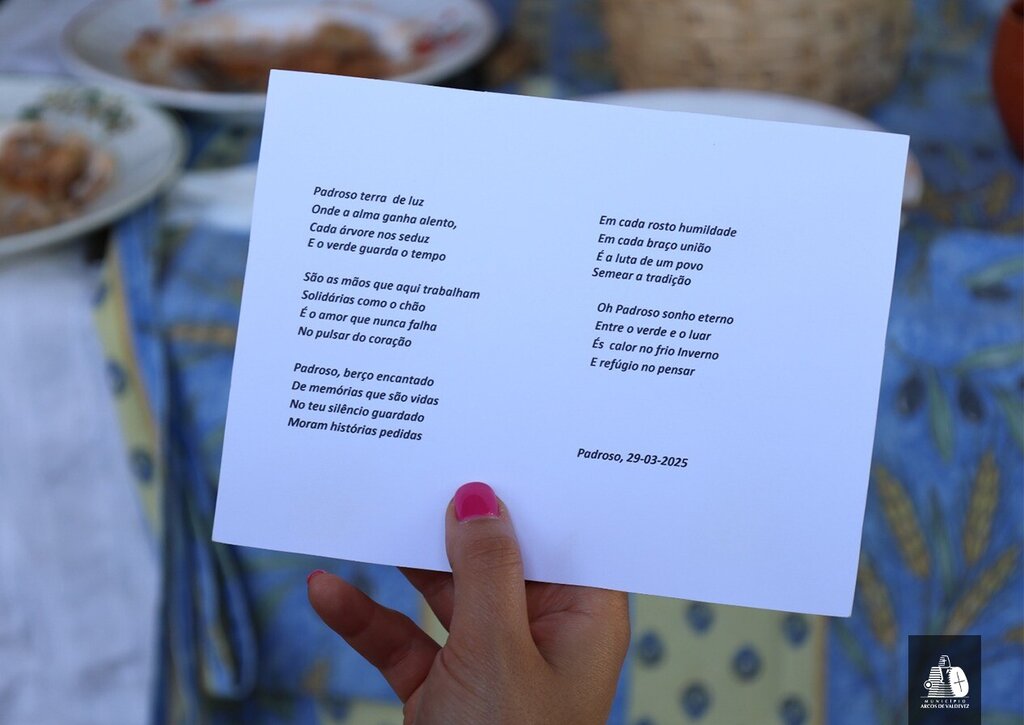 Padroso terra de luz
Onde a alma ganha alento,
Cada árvore nos seduz
E o verde guarda o tempo
São as mãos que aqui trabalham
Solidárias como o chão
É o amor que nunca falha
No pulsar do coração
Padroso, berço encantado
De memórias que são vidas
No teu silêncio guardado
Moram histórias pedidas
Em cada rosto humildade
Em cada braço união
É a luta de um povo
Semear a tradição
Oh Padroso sonho eterno
Entre o verde e o luar
És calor no frio Inverno
E refúgio no pensar
Padroso, 29-03-2025
MUNICÍPIO
ARCOS DE VALDEVEZ